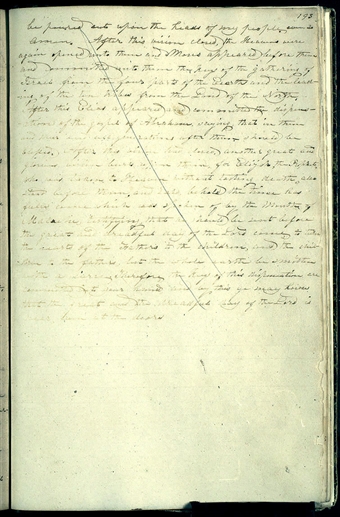 193
be poured out upon the heads of my people, even so
Amen. After this vision closed, the Heavens were
again opened unto them and Moses appeared before them
and committed unto them the keys of the gathering of
Israel from the four parts of the Earth and the lead-
ing of the ten tribes from the Land of the North
After this Elias appeared and committed the dispen-
sation of the gospel of Abraham, saying, that in them
and their seed all generations after them should be
blessed. After this vision had closed, another great and
glorious vision burst upon them, for Elijah, the Prophet,
who was taken to Heaven without tasting death, also
stood before them, and said, behold the time has
fully come which was spoken of by the Mouth of
Malachi, testifying, that he should be sent before
the great and dreadful day of the Lord come, to turn
the hearts of the Fathers to the children, and the chil-
dren to the fathers, lest the whole earth be smitten
with a curse. Therefore, the Keys of this dispensation are
committed to your hands, and by this ye may know
that the great and the dreadful day of the Lord is
near, even at the doors